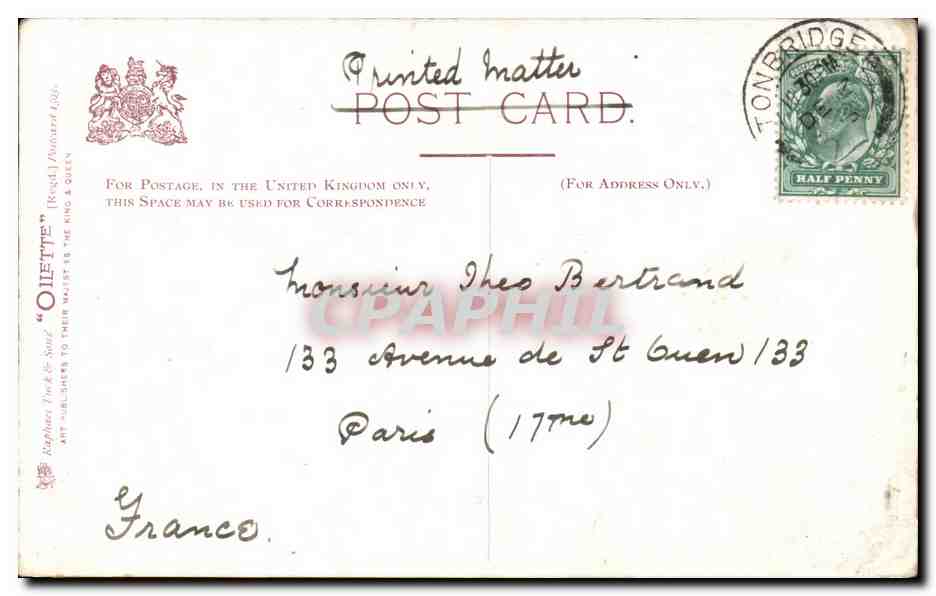 Printed Matter
POST CARD.
TONBRIDGE
DE
HALF PENNY
FOR POSTAGE, IN THE UNITED KINGDOM ONLY,
THIS SPACE MAY BE USED FOR CORRESPONDENCE
(FOR ADDRESS ONLY.)
Monsieur Theo Bertrand
CPAPHIL
133 Avenue de St Ouen 133
Paris (17me)
France.
Raphael Tuck & Sons' "OILETTE" [Regd.] Postcard
ART PUBLISHERS TO THEIR MAJESTIES THE KING & QUEEN